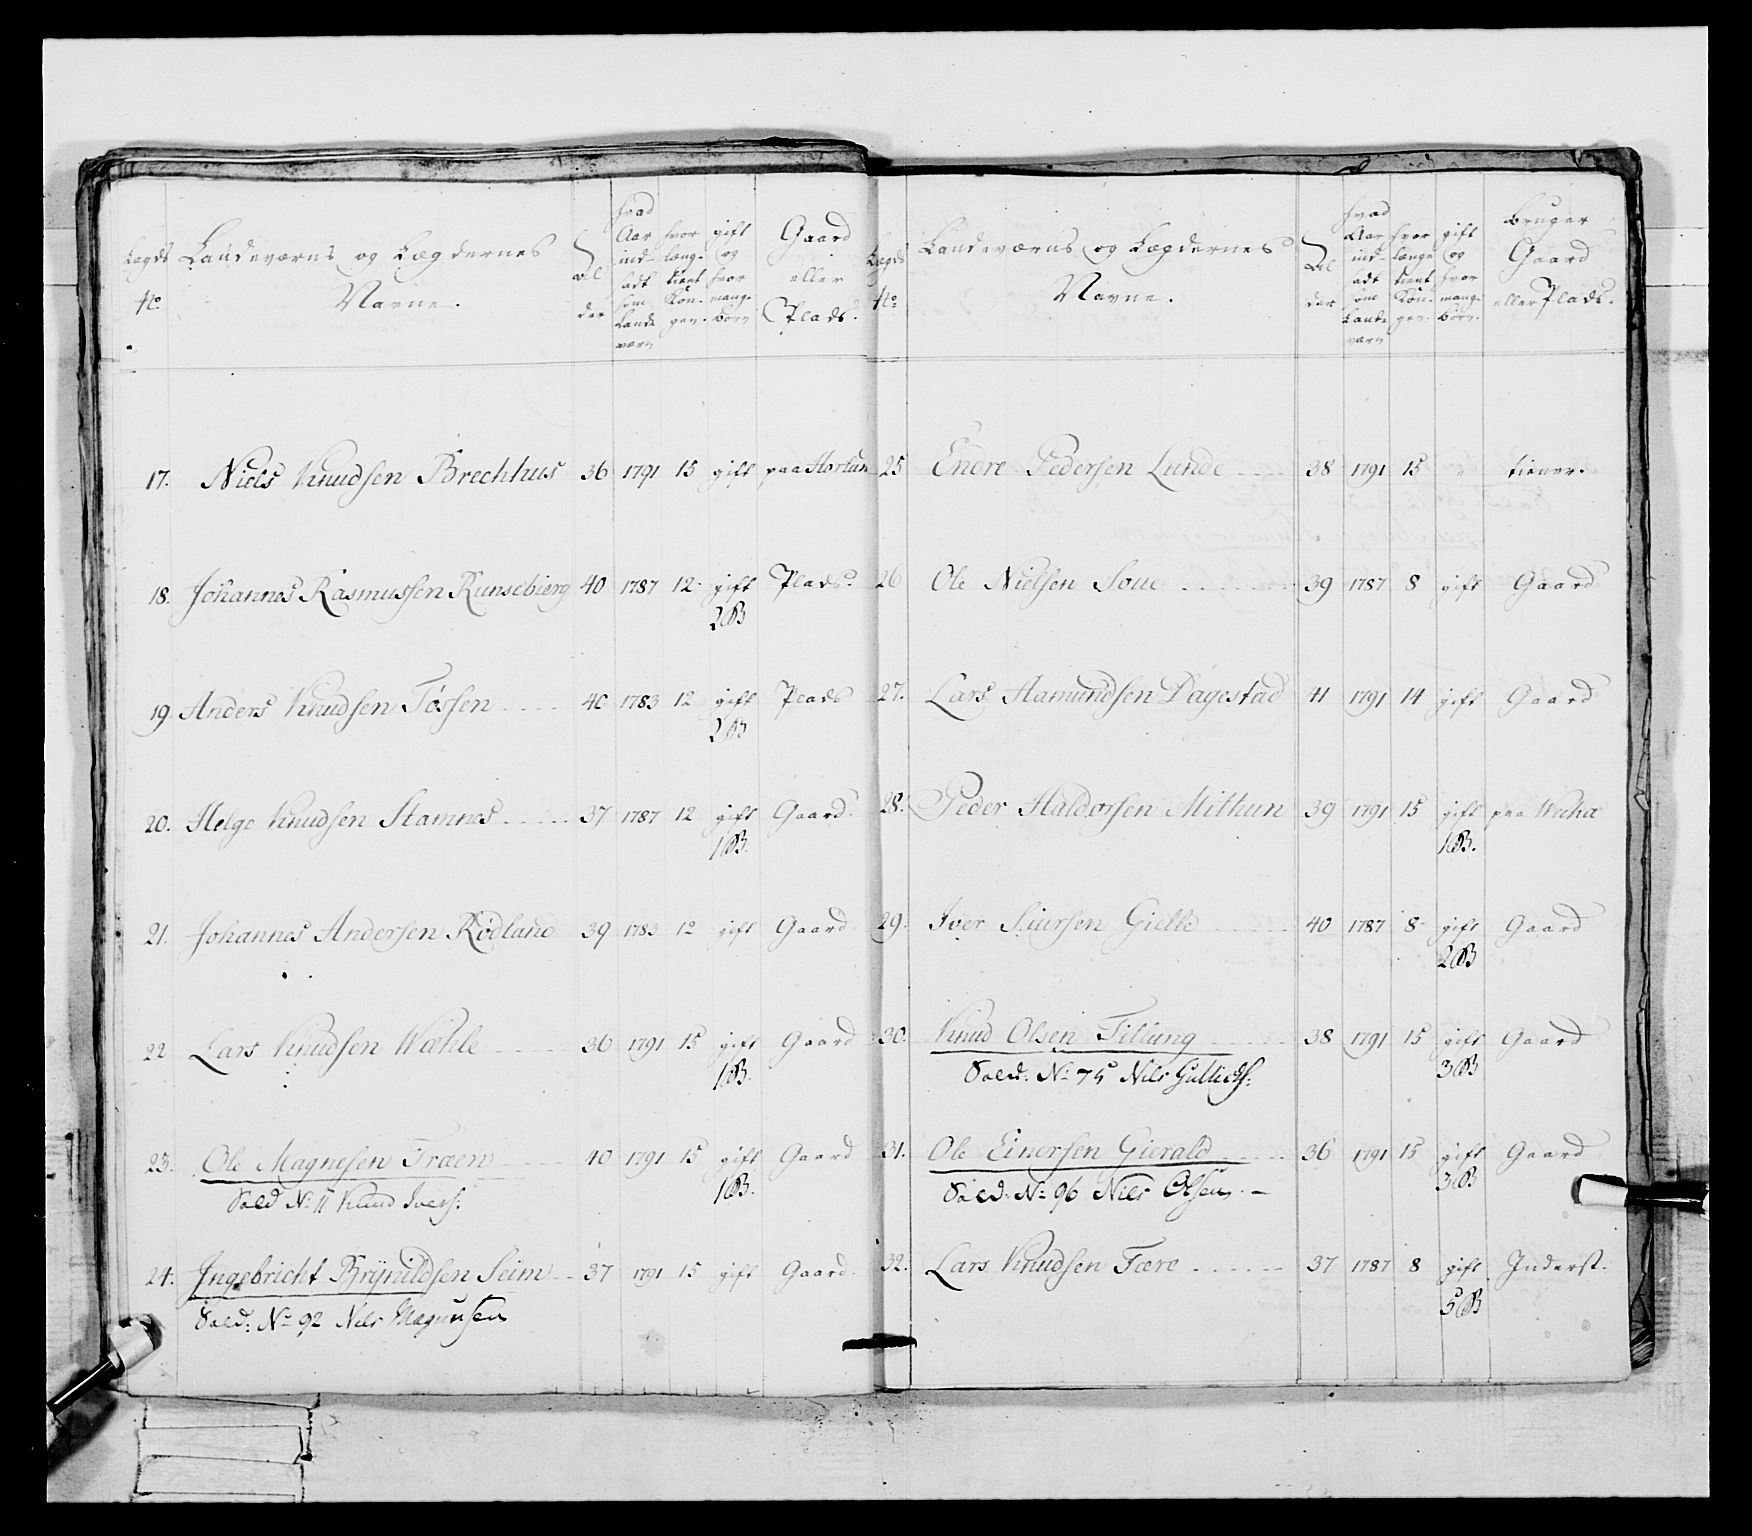 Lægds No. | Landeværns og Lægdernes Navne. | Alder | hvad Aar indsadt som Landeværn | hvor længe tient Kongen. | gift og hvor mange børn | Gaard eller Plads.
17. Niels Knudsen Brechhus 36 1791 15 gift paa Hortun
18. Johannes Rasmussen Runsebierg 40 1787 12 gift Plads.
2 B
19. Anders Knudsen Tøssen 40 1783 12 gift Plads
2 B
20. Helge Knudsen Stamnes 37 1787 12 gift Gaard.
1 B.
21. Johannes Andersen Rødland 39 1783 12 gift Gaard
22 Lars Knudsen Wæhle 36 1791 15 gift Gaard
1 B.
23. Ole Magnesen Træen 40 1791 15 gift Gaard
1 B.
Sold No. 11 Knud Ivers:
24. Ingebricht Brÿnildsen Seim 37 1791 15 gift Gaard.
Sold: No. 92 Nils Magnusen
Lægds No. | Landeværns og Lægdernes Navne. | Alder | hvad Aar indsadt som Landeværn | hvor længe tient Kongen. | gift og hvor mange børn. | bruger Gaard eller Plads.
25 Endre Pedersen Lunde 38 1791 15 " tiener.
26 Ole Nielsen Soue 39 1787 8 gift Gaard
27. Lars Aamundsen Dagestad 41 1791 14 gift Gaard
28. Peder Haldorsen Mithun 39 1791 15 gift paa
1 B.
29. Iver Siursen Gielle 40 1787 8 gift Gaard
2 B
30. Knud Olsen Tillung 38 1791 15 gift Gaard
3 B
Sold: No. 75 Nils Gulliks:
31. Ole Einersen Gierald 36 1791 15 gift Gaard
3 B
Sold: No. 96 Nils Olsen.
32. Lars Knudsen Fære 37 1787 8 gift Inderst.
5 B